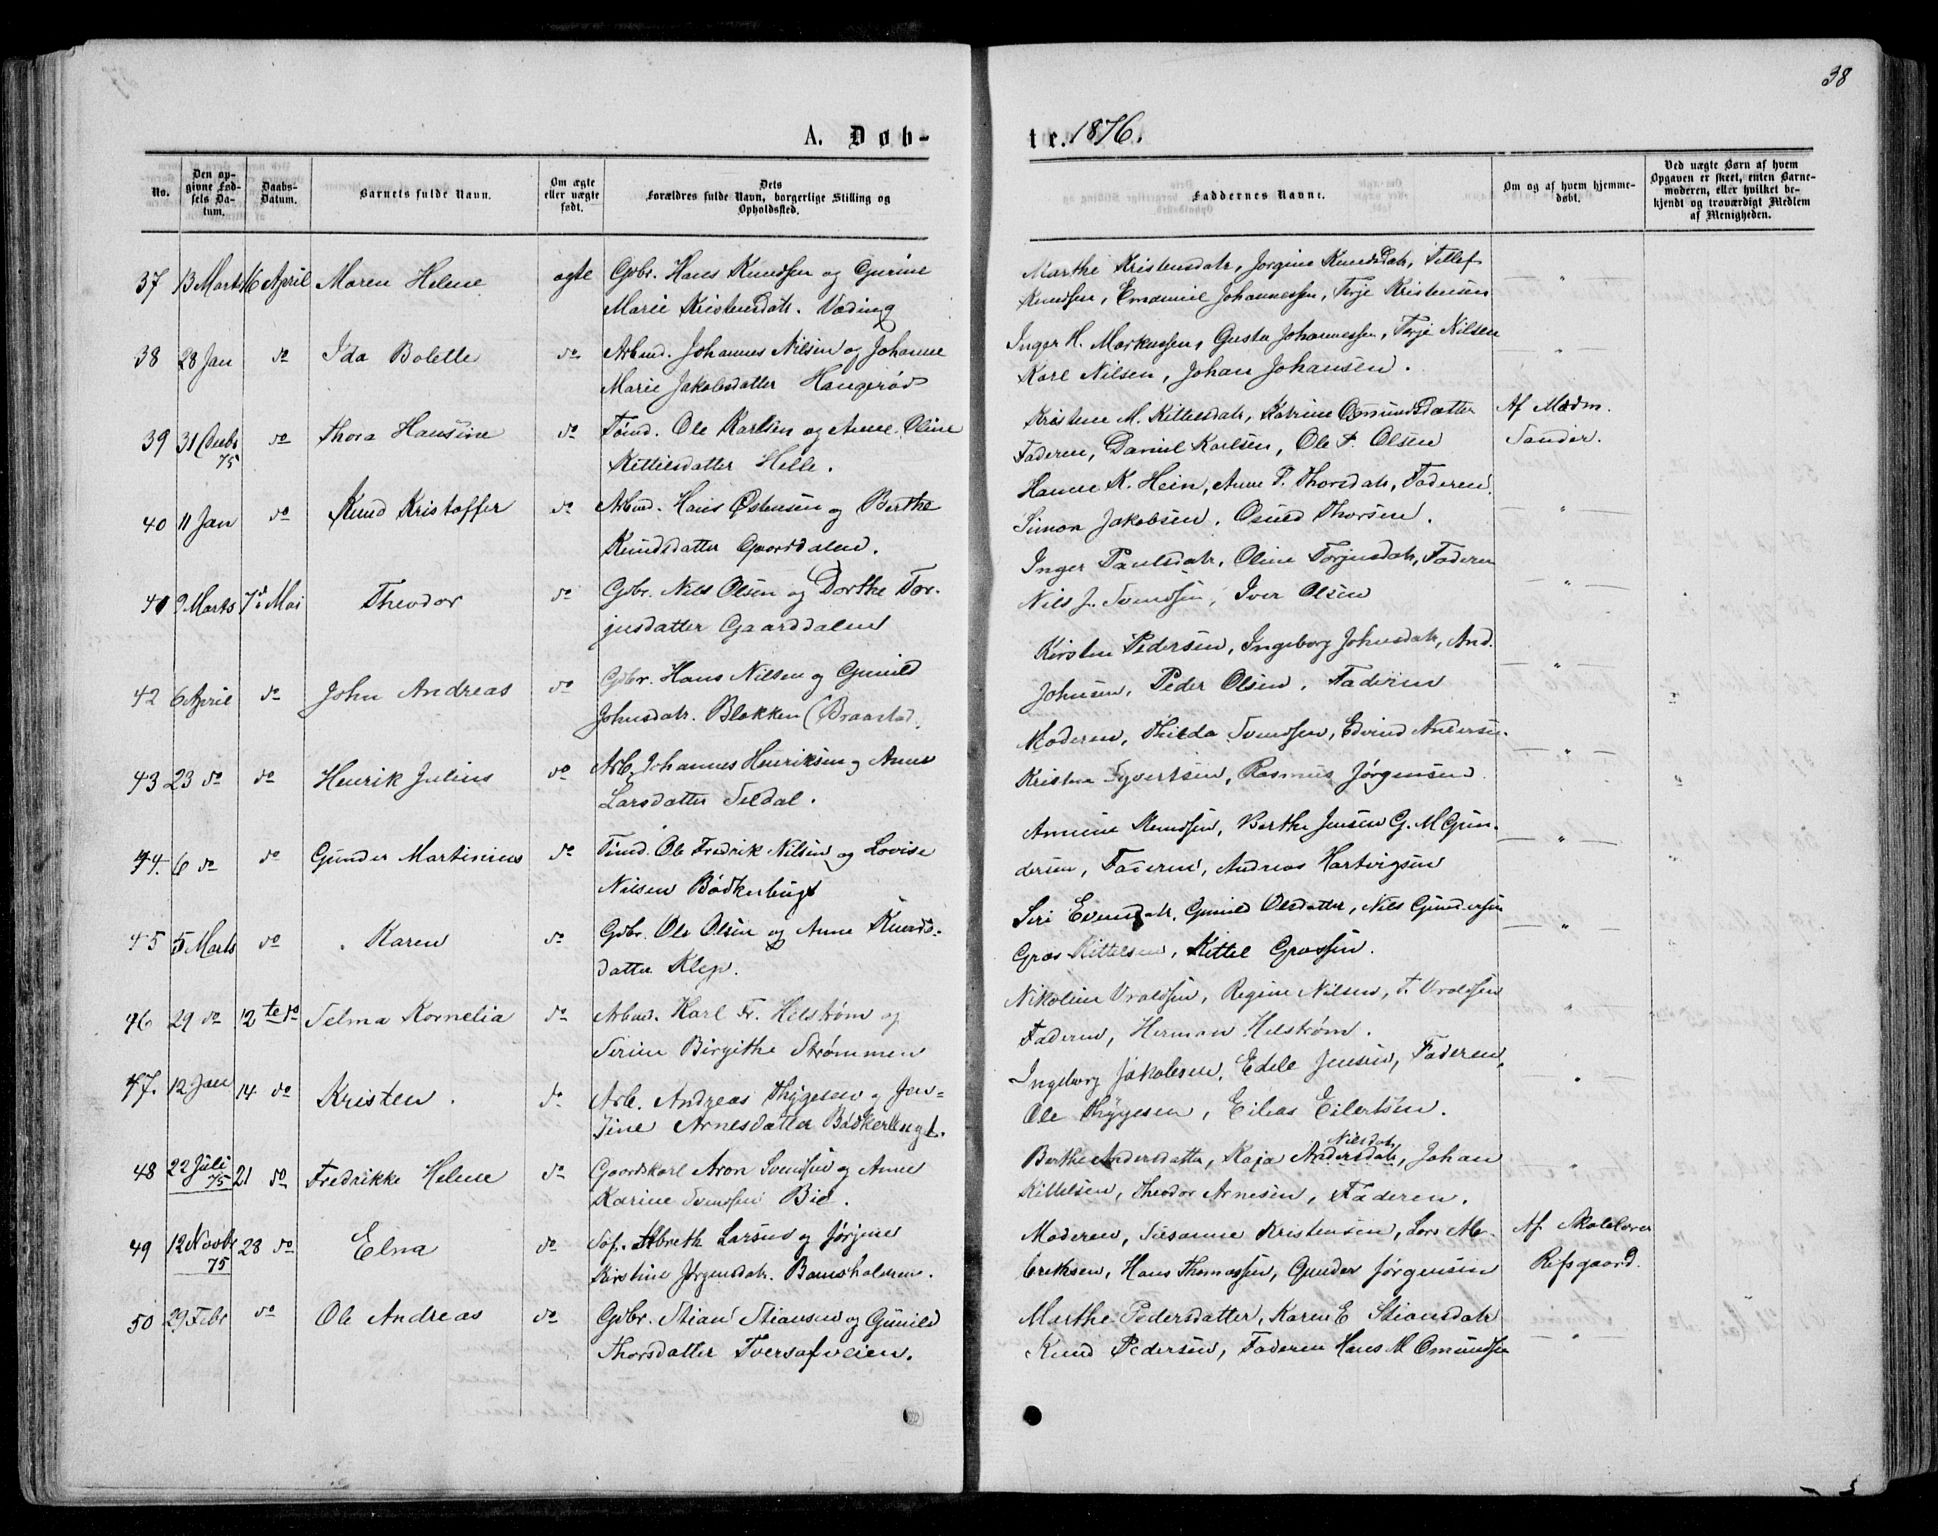 38
A. Døb-
te. 1876.
No.
Den op-
givne Fød-
sels Da-
tum.
Daabs-
Datum.
Barnets fulde Navn.
Om ægte
eller uægte
født.
Dets
Forældres fulde Navn, borgerlige Stilling og
Opholdssted.
Faddernes Navne.
Om og af hvem hjemme-
døbt.
Ved uægte Børn af hvem
Opgaven er skeet, enten Barne-
moderen, eller hvilket be-
kjendt og troværdigt Medlem
af Menigheden.
37 13 Marts 16 April Maren Helene ægte Gdbr. Hans Knudsen og Gurine
Marie Kristensdatr. Væding
Marthe Kristensdatr, Jørgine Knudsdatr, Detlef
Knudsen, Emanuel Johannessen, Terje Kristensen
38 28 Jan do Ida Bolette do Arbmd. Johannes Nilsen og Johanne
Marie Jakobsdatter Haugerød
Inger H. Markussen, Gusta Johannessen, Terje Nilsen
Karl Nilsen, Johan Johansen.
39 31 Decbr 75 do Thora Hansine do Tømd. Ole Karlsen og Anne Oline
Kittilsdatter Helle.
Kristine M. Kittilsdatr, Katrine Osmundsdatter
Faderen, Daniel Karlsen, Ole P. Olsen
Af Madm.
Sander.
40 11 Jan do Knud Kristoffer do Arbmd. Hans Østensen og Berthe
Knudsdatter Gaarddalen.
Hanne K. Hein, Anne T. Thorsdatr, Faderen
Simon Jakobsen, Osuld Thorsen.
41 9 Marts 7de Mai Theodor do Gdbr. Nils Olsen og Dorthe Tor-
jusdatter Gaarddalen
Inger Paulsdatr, Oline Torjusdatr, Faderen
Nils J. Svendsen, Iver Olsen
42 6 April do John Andreas do Gdbr. Hans Nilsen og Gunild
Johnsdatr. Blokken (Braastad
Kirstine Pedersen, Ingeborg Johnsdatr, And.
Johnsen, Peder Olsen, Faderen
43 23 do do Henrik Julius do Arb. Johannes Henriksen og Anne
Larsdatter Seldal.
Moderen, Thilda Svendsen, Edvind Andersen
Kristen Syvertsen, Rasmus Jørgensen
44. 6 do do Gunder Martinius do Tømd. Ole Fredrik Nilsen og Lovise
Nilsen Bødkerbugt
Annine Knudsen, Berthe Jensen G. M Gun-
dersen, Faderen, Andreas Hartvigsen
45 5 Marts do Karen do Gdbr. Ole Olsen og Anne Knuds-
datter Klep.
Siri Evensdatr, Gunild Olsdatter, Nils Gundersen
Gros Kittelsen, Kittel Grossen.
46 29 do 12te do Selma Kornelia do Arbmd. Karl Fr. Helstrøm og
Serine Birgithe Strømmen
Nikoline Uraldsen, Regine Nilsen, T. Uraldsen
Faderen, Herman Helstrøm.
47. 12 Jan 14 do Kristen. do Arb. Andreas Thygesen og Jen-
sine Arnesdatter Bødkerbugt.
Ingeborg Jakobsen, Edele Jensen, Faderen,
Ole Thygesen, Eilias Eilertsen.
48 22 Juli 75 21 do Fredrikke Helene do Gaardskarl Aron Svendsen og Anne
Karine Svendsen Bie.
Berthe Andersdatter, Kaja Andersdatr Nilsdatr, Johan
Kittelsen, Theodor Arnesen, Faderen.
49 12 Novbr 75 28 do Elna do Søf. Albreth Larsen og Jørgine
Kirstine Jørgensdatr. Bamsholmen.
Moderen, Susanne Kristensen, Lars Al-
brektsen, Hans Thomassen, Gunder Jørgensen
Af Skolelærer
Refsgaard.
50 29 Febr do Ole Andreas do Gdbr. Stian Stiansen og Gunild
Thorsdatter Tversafveien.
Marthe Pedersdatter, Karen E Stiansdatr
Knud Pedersen, Faderen Hans M Omundsen